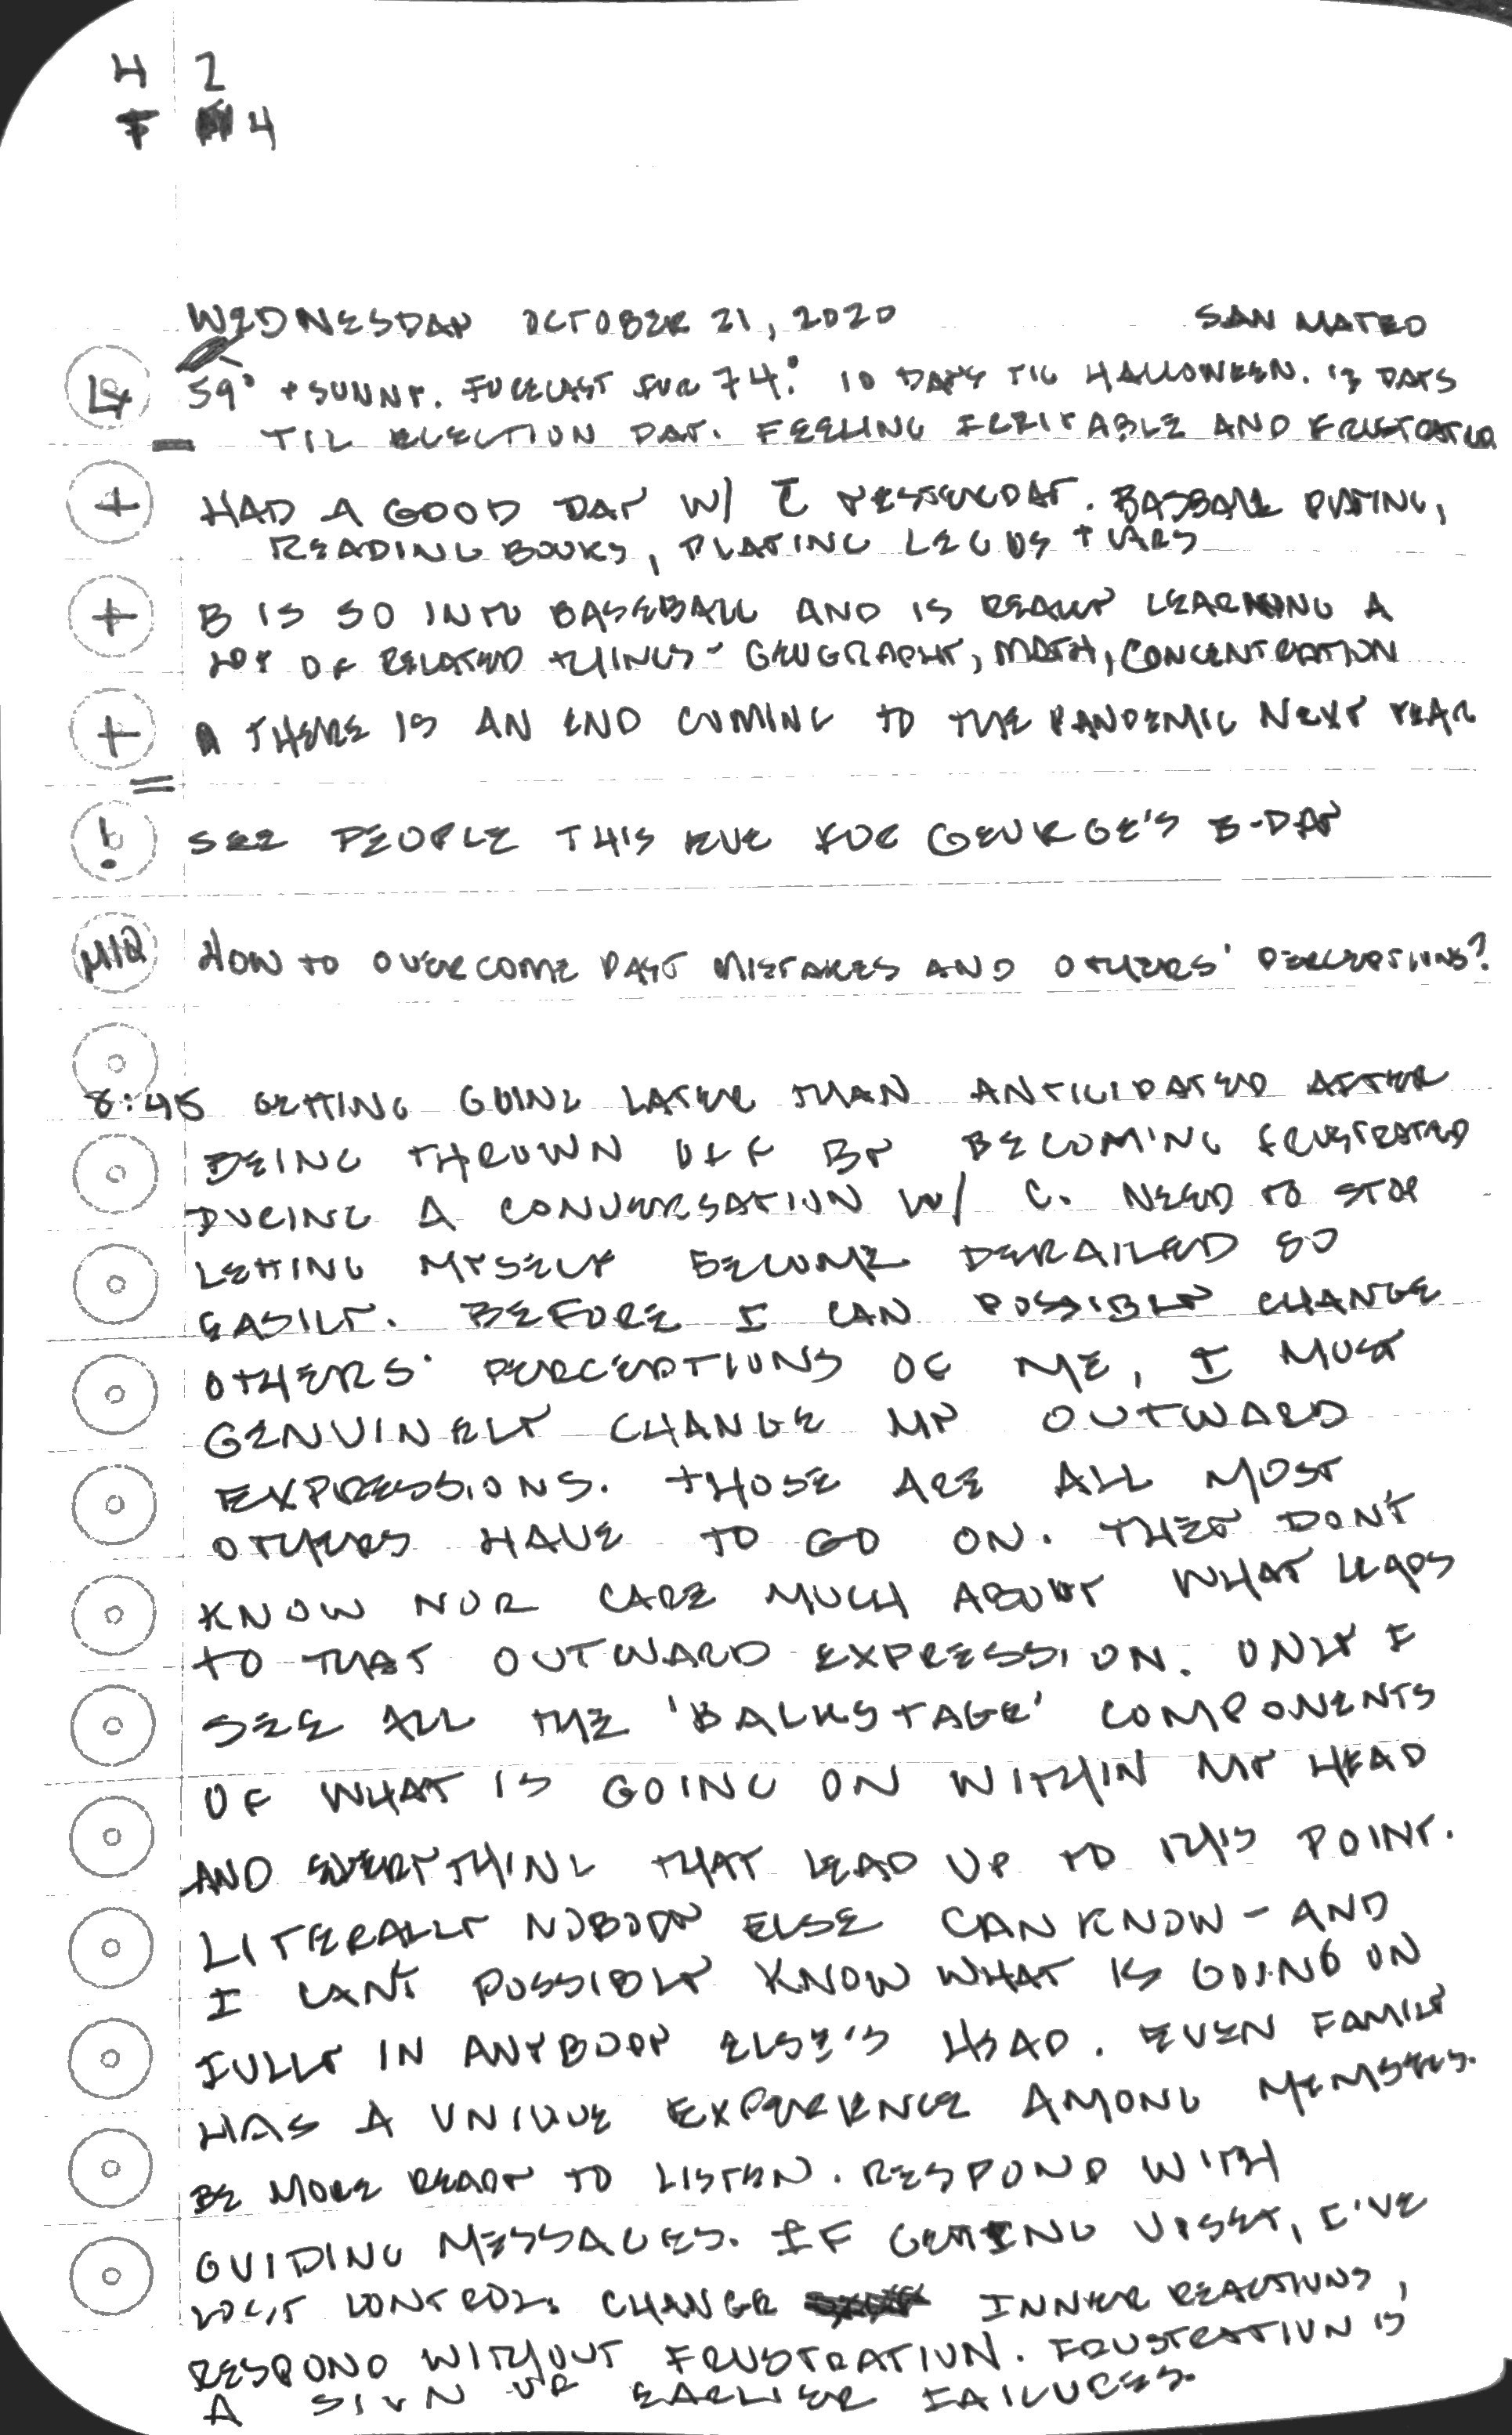 H 2
F 4
WEDNESDAY OCTOBER 21, 2020 SAN MATEO
59° + SUNNY. FORECAST FOR 74°. 10 DAYS TIL HALLOWEEN. 13 DAYS
TIL ELECTION DAY. FEELING IRRITABLE AND FRUSTRATED
+ HAD A GOOD DAY W/ T YESTERDAY. BASBALL PLAYING,
READING BOOKS, PLAYING LEGOS + CARS
+ B IS SO INTO BASEBALL AND IS REALLY LEARNING A
LOT OF RELATED THINGS - GEOGRAPHY, MATH, CONCENTRATION
+ THERE IS AN END COMING TO THE PANDEMIC NEXT YEAR
=
! SEE PEOPLE THIS EVE FOR GEORGE'S B-DAY
MIQ HOW TO OVERCOME PAST MISTAKES AND OTHERS' PERCEPTIONS?
8:45 GETTING GOING LATER THAN ANTICIPATED AFTER
BEING THROWN OFF BY BECOMING FRUSTRATED
DURING A CONVERSATION W/ C. NEED TO STOP
LETTING MYSELF BECOME DERAILED SO
EASILY. BEFORE I CAN POSSIBLY CHANGE
OTHERS' PERCEPTIONS OF ME, I MUST
GENUINELY CHANGE MY OUTWARD
EXPRESSIONS. THOSE ARE ALL MOST
OTHERS HAVE TO GO ON. THEY DON'T
KNOW NOR CARE MUCH ABOUT WHAT LEADS
TO THAT OUTWARD EXPRESSION. ONLY I
SEE ALL THE 'BACKSTAGE' COMPONENTS
OF WHAT IS GOING ON WITHIN MY HEAD
AND EVERYTHING THAT LEAD UP TO THIS POINT.
LITERALLY NOBODY ELSE CAN KNOW - AND
I CAN'T POSSIBLY KNOW WHAT IS GOING ON
FULLY IN ANYBODY ELSE'S HEAD. EVEN FAMILY
HAS A UNIQUE EXPERIENCE AMONG MEMBERS.
BE MORE READY TO LISTEN. RESPOND WITH
GUIDING MESSAGES. IF GETTING UPSET, I'VE
LOST CONTROL. CHANGE INNER REACTIONS,
RESPOND WITHOUT FRUSTRATION. FRUSTRATION IS
A SIGN OF EARLIER FAILURES.